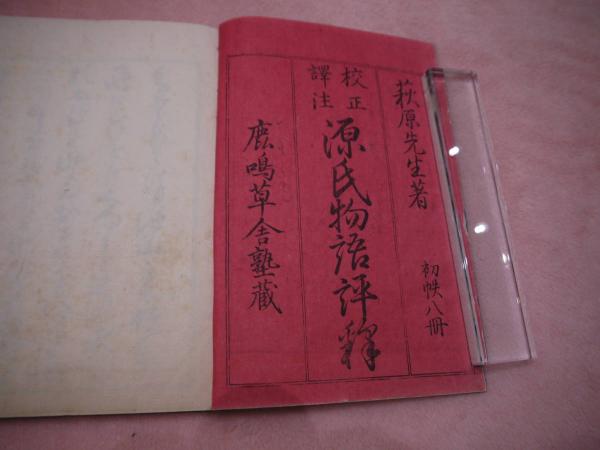 萩原先生著
初帙八冊
校正
譯注
源氏物語評釋
鹿鳴草舎塾藏